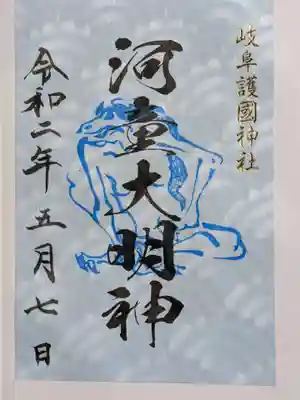 岐阜護國神社
河童大明神
令和二年五月七日